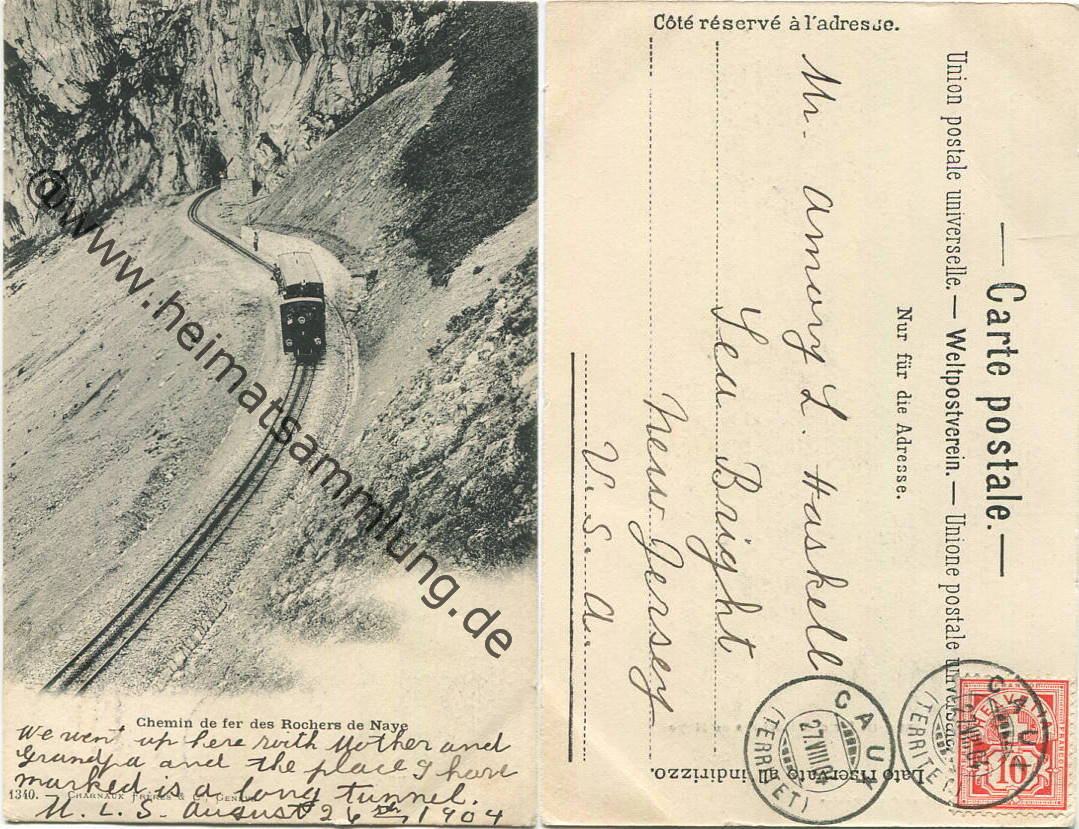 @www.heimatsammlung.de
Chemin de fer des Rochers de Naye
We went up here with Mother and
Grandpa and the place I have
marked is a long tunnel.
1340. CHARNAUX FRÈRES & Cº, GENÈVE
M. L. S. August 26th, 1904
Côté réservé à l'adresse.
— Carte postale. —
Union postale universelle. — Weltpostverein. — Unione postale universale.
Nur für die Adresse.
Mr. Amory L. Haskell
Seu Bright
New Jersey
U. S. A.
Dato riservato all'indirizzo.
CAUX
27.VIII.04
(TERRITET)
CAUX
27.VIII.04
(TERRITET)
HELVETIA
10